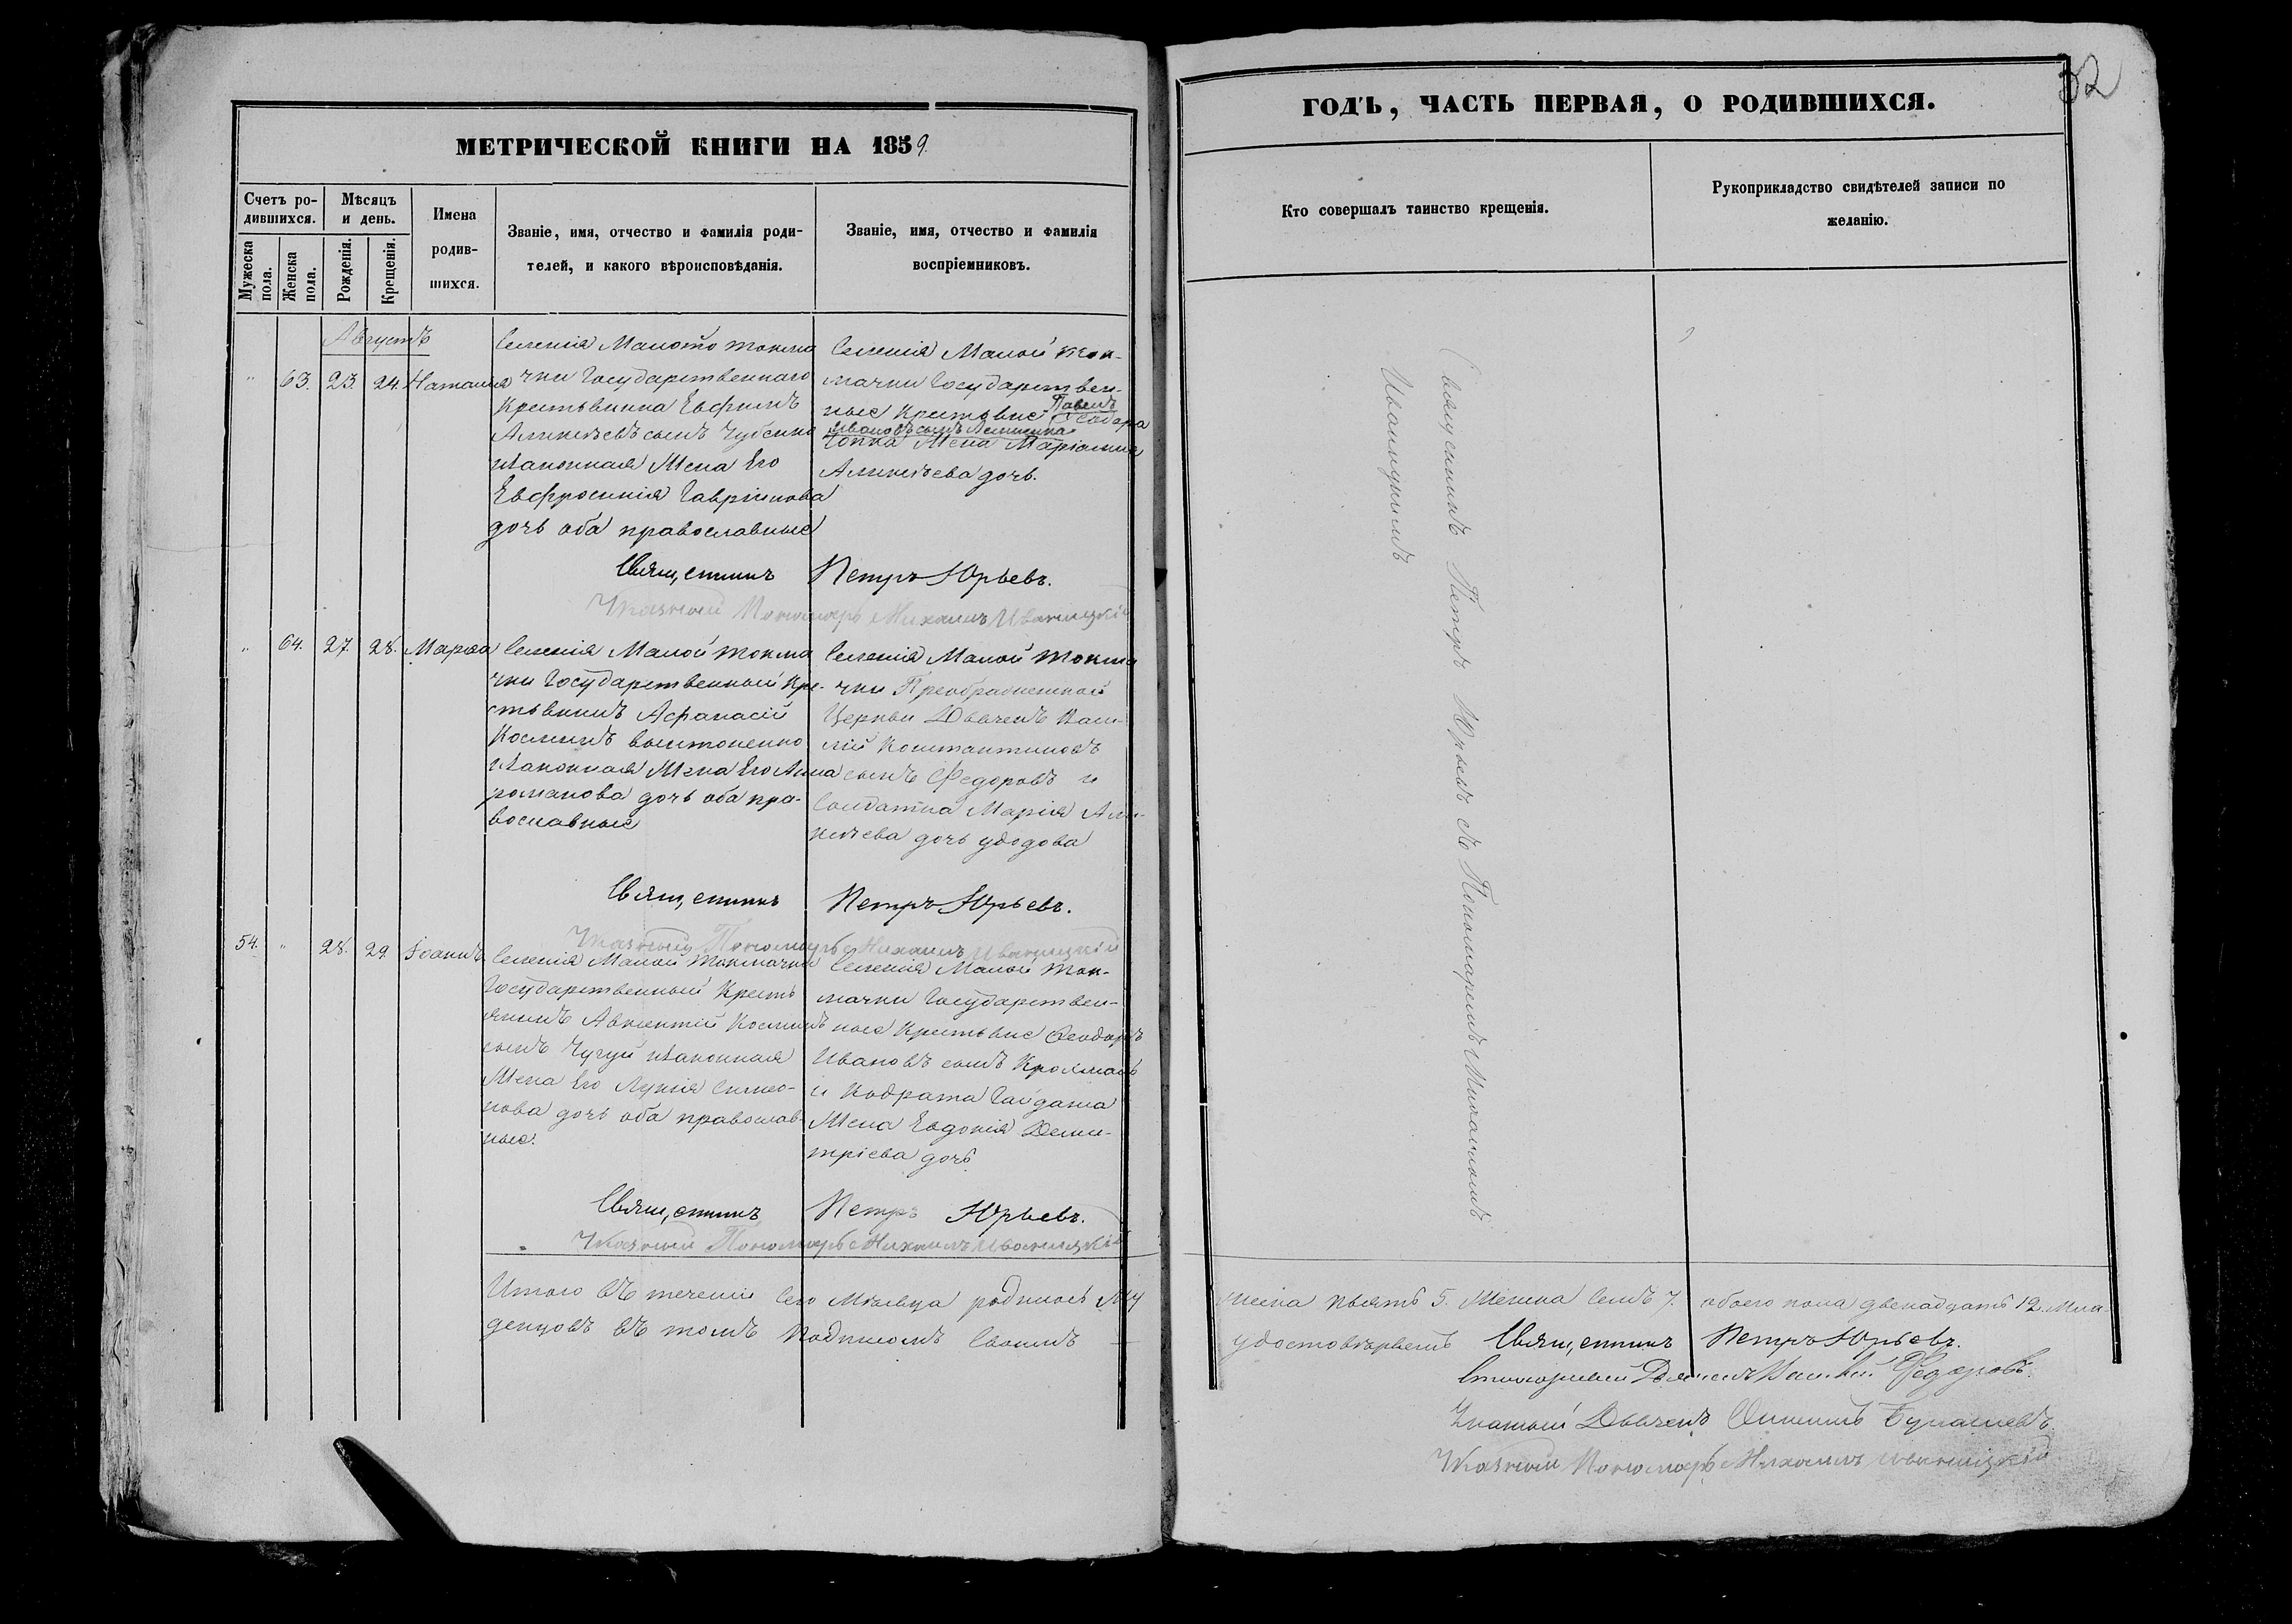 МЕТРИЧЕСКОЙ КНИГИ НА 1859.
Счетъ ро-
дившихся.
Мѣсяцъ
и день.
Имена
родив-
шихся.
Званіе, имя, отчество и фамилія роди-
телей, и какого вѣроисповѣданія.
Званіе, имя, отчество и фамилія
воспріемниковъ.
Мужеска
пола.
Женска
пола.
Рожденія.
Крещенія.
Августъ
" 63. 23. 24. Наталия
Селенія Малой токма
чки Государственнаго
Крестьянина Евфимъ
Алексѣевъ сынъ Чубенко
Законная Жена Его
Евфросинія Гавріилова
дочь оба православные
Селенія Малой Ток-
мачки Государствен-
ные Крестьяне Павелъ
Ивановъ сынъ
Феодора
Жена Маріамна
Алексѣева дочь.
Священникъ Петръ Юрьевъ.
Указный Пономарь Михаилъ Иваницкій
" 64. 27. 28. Марфа
Селенія Малой токма
чки Государственный Кре-
стьянинъ Афанасій
Косминъ
Законная Жена Его Анна
романова дочь оба пра-
вославные
Селенія Малой Токма
чки Преображенской
Церкви Дьячекъ Васи-
лій Константиновъ
сынъ Федоровъ и
Солдатка Марія Але-
ксѣева дочь удодова
Священникъ Петръ Юрьевъ.
Указный Пономарь Михаилъ Иваницкій
54. " 28. 29. Іоаннъ
Селенія Малой Токмачки
Государственный Кресть
янинъ Авксентій Косминъ
сынъ Чугуй Законная
Жена Его Лукія Симео-
нова дочь оба православ-
ные.
Селенія Малой Ток-
мачки Государствен-
ные Крестьяне Феодоръ
Ивановъ сынъ
и Кодрата Гайдаша
Жена Евдокія Дими-
тріева дочь.
Священникъ Петръ Юрьевъ.
Указный Пономарь Михаилъ Иваницкій
Итого въ теченіи сего Мѣсяца родилось Му
денцовъ въ томъ Подписомъ Своимъ —
32
ГОДЪ, ЧАСТЬ ПЕРВАЯ, О РОДИВШИХСЯ.
Кто совершалъ таинство крещенія.
Рукоприкладство свидѣтелей записи по
желанію.
Священникъ Петръ Юрьевъ съ Пономаремъ Михаиломъ
Иваницкимъ
жеска пьять 5. Женска семъ 7. обоего пола двенадцать 12. Мла
удостовѣряемъ Священникъ Петръ Юрьевъ.
Василій Федоровъ.
Указный Дьячекъ
Указный Пономарь Михаилъ Иваницкій